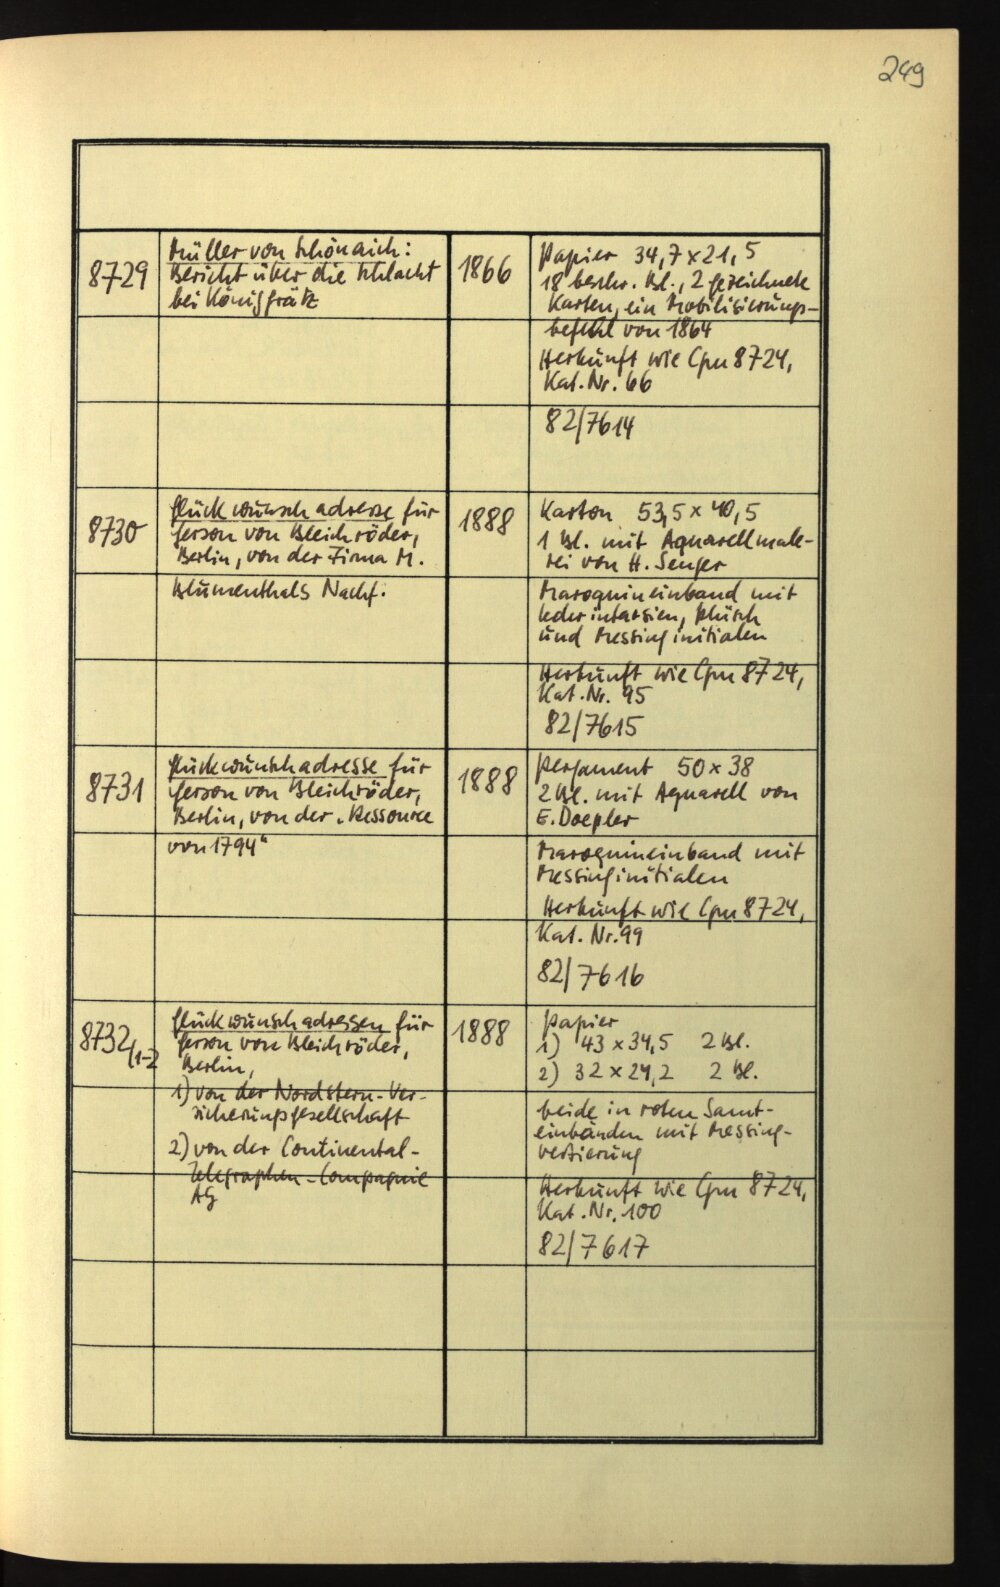 249
8729
Müller von Schönaich:
Bericht über die Schlacht
bei Königgrätz
1866
Papier 34,7 x 21,5
18 beschr. Bl., 2 gezeichnete
Karten, ein Mobilisierungs-
befehl von 1864
Herkunft wie Cgm 8724,
Kat. Nr. 66
82/7614
8730
Glückwunschadresse für
Gerson von Bleichröder,
Berlin, von der Firma M.
Blumenthals Nachf.
1888
Karton 53,5 x 40,5
1 Bl. mit Aquarellmale-
rei von H. Senger
Maroquineinband mit
Lederintarsien, Plüsch
und Messinginitialen
Herkunft wie Cgm 8724,
Kat. Nr. 95
82/7615
8731
Glückwunschadresse für
Gerson von Bleichröder,
Berlin, von der „Ressource
von 1794"
1888
Pergament 50 x 38
2 Bl. mit Aquarell von
E. Doepler
Maroquineinband mit
Messinginitialen
Herkunft wie Cgm 8724,
Kat. Nr. 99
82/7616
8732/1-2
Glückwunschadressen für
Gerson von Bleichröder,
Berlin,
1) von der Nordstern-Ver-
sicherungsgesellschaft
2) von der Continental-
Telegraphen-Compagnie
AG
1888
Papier
1) 43 x 34,5 2 Bl.
2) 32 x 24,2 2 Bl.
beide in roten Samt-
einbänden mit Messing-
verzierung
Herkunft wie Cgm 8724,
Kat. Nr. 100
82/7617